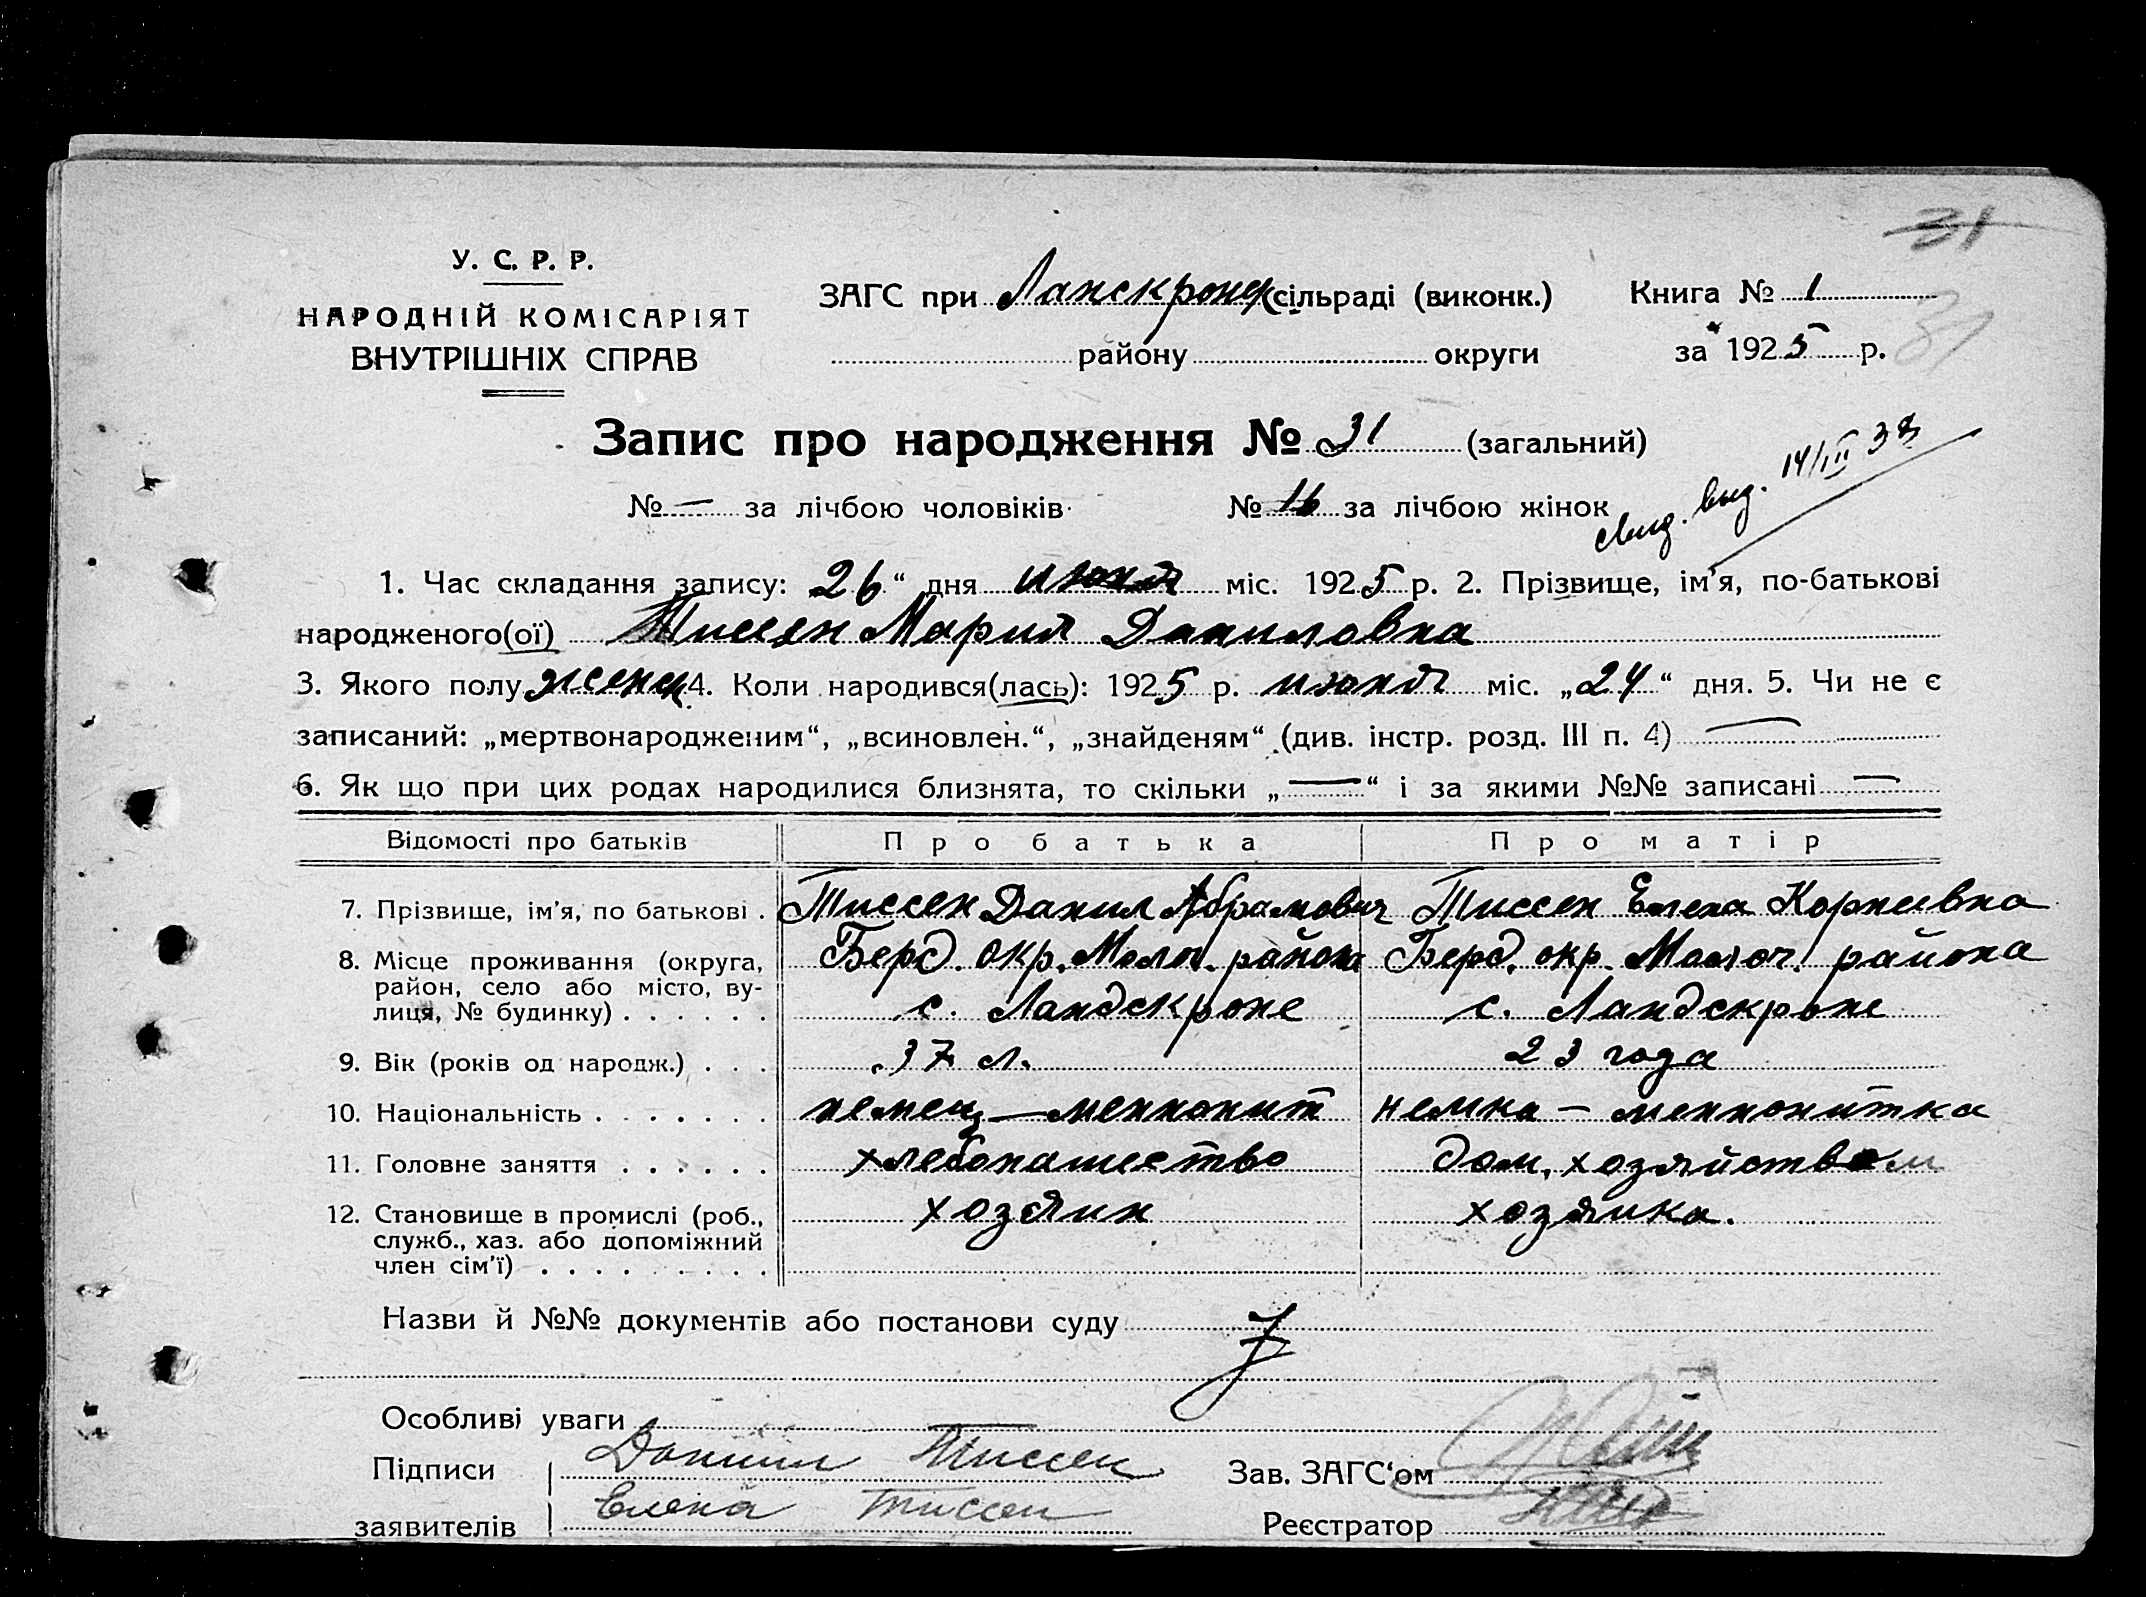 31
У. С. Р. Р.
НАРОДНІЙ КОМІСАРІЯТ
ВНУТРІШНІХ СПРАВ
ЗАГС при Ланскронск сільраді (виконк.)
району округи
Книга № 1
за 1925 р.
31
Запис про народження № 31 (загальний)
№ — за лічбою чоловіків № 16 за лічбою жінок
свид. выд. 14/III 38
1. Час складання запису: 26 “ дня июня міс. 1925 р. 2. Прізвище, ім'я, по-батькові
народженого(ої) Тиссен Мария Даниловна
3. Якого полу женск. 4. Коли народився(лась): 1925 р. июня міс. „24“ дня. 5. Чи не є
записаний: „мертвонародженим“, „всиновлен.“, „знайденям“ (див. інстр. розд. III п. 4) —
6. Як що при цих родах народилися близнята, то скільки „—“ і за якими №№ записані —
Відомості про батьків Про батька Про матір
7. Прізвище, ім'я, по батькові . Тиссен Данил Абрамович Тиссен Елена Корнеевна
8. Місце проживання (округа, район, село або місто, вулиця, № будинку) . . . . . . Берд. окр. Мол. района Берд. окр. Молоч. района
с. Ландскроне с. Ландскроне
9. Вік (років од народж.) . . . 37 л. 23 года
10. Національність . . . . . . . немец — меннонит немка — меннонитка
11. Головне заняття . . . . . . хлебопашество дом. хозяйством
12. Становище в промислі (роб., служб., хаз. або допоміжний член сім'ї) . . . . . . . . . хозяин хозяйка.
Назви й №№ документів або постанови суду
Особливі уваги —
Підписи Даниил Тиссен Зав. ЗАГС'ом
заявителів Елена Тиссен Реєстратор